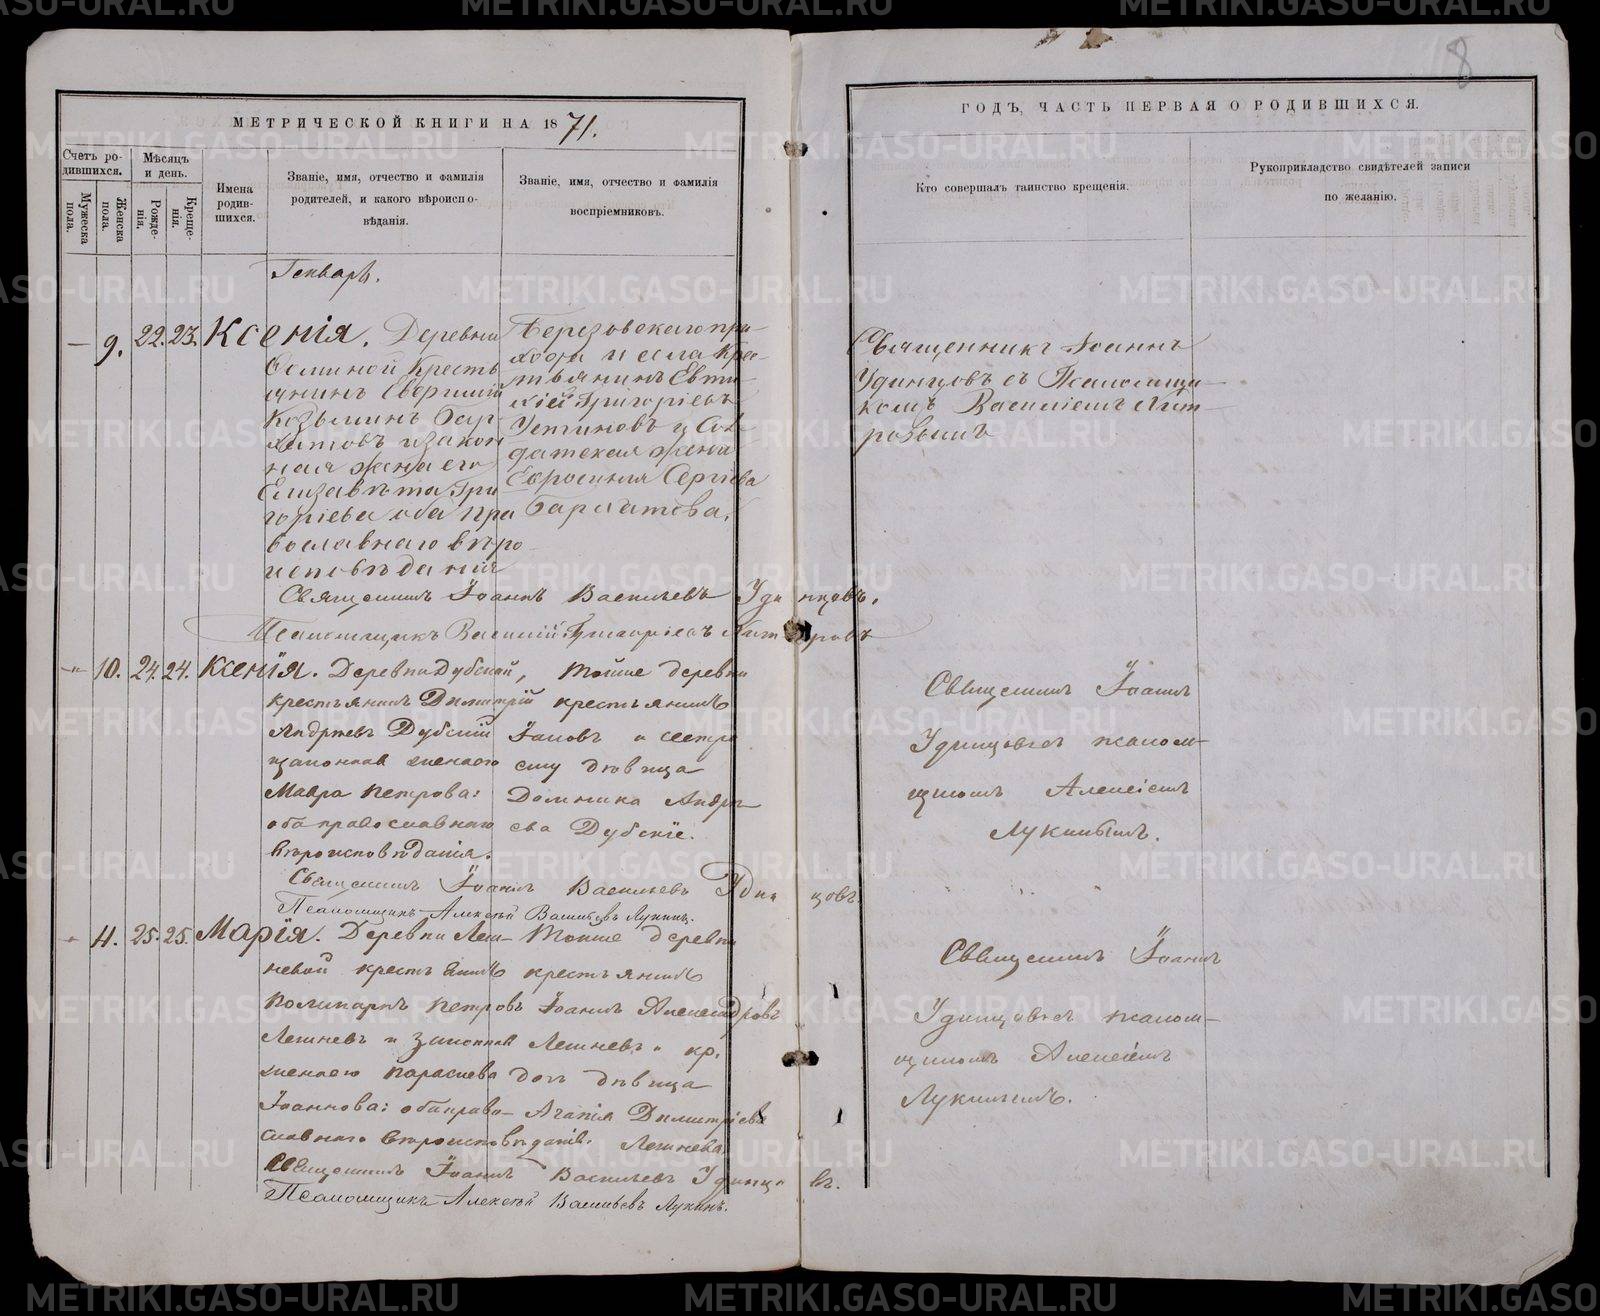 METRIKI.GASO-URAL.RU
8
МЕТРИЧЕСКОЙ КНИГИ НА 1871.
Счетъ родившихся.
Мужеска пола.
Женска пола.
Мѣсяцъ и день.
Рожденія.
Крещенія.
Имена родившихся.
Званіе, имя, отчество и фамилія
родителей, и какого вѣроиспо-
вѣданія.
Званіе, имя, отчество и фамилія
воспріемниковъ.
ГОДЪ, ЧАСТЬ ПЕРВАЯ О РОДИВШИХСЯ.
Кто совершалъ таинство крещенія.
Рукоприкладство свидѣтелей записи
по желанію.
Генварь.
9. 22. 23. Ксенія. Деревни
Крестъ
янинъ
Козьминъ Бар
матовъ и закон
ная жена его
Елизавѣта Гри
горіева оба пра
вославнаго вѣро
исповѣданія
Березовскаго при
хода и села Крес
тьянинъ Евти
хій Григоріевъ
Устиновъ и Сол
датская жена
Евросинія Сергіева
Барматова.
Священникъ Іоаннъ
Удинцовъ съ Псаломщи-
комъ Василіемъ Хит-
ровымъ
Священникъ Іоаннъ Васильевъ Удинцовъ.
Псаломщикъ Василій Григоріевъ Хитровъ
10. 24. 24. Ксенія. Деревни Дубской,
крестьянинъ Димитрій
Андреевъ Дубскій
законная жена его
Мавра Петрова:
оба православнаго
вѣроисповѣданія.
Тойже деревни
крестьянинъ
Іаковъ и сестра
ему дѣвица
Домника Андре-
ева Дубскіе.
Священникъ Іоаннъ
Удинцовъ съ псалом-
щикомъ Алексіемъ
Лукинымъ.
Священникъ Іоаннъ Васильевъ Удинцовъ.
Псаломщикъ Алексѣй Васильевъ Лукинъ.
11. 25. 25. Марія. Деревни Леш-
невой крестьянинъ
Поликарпъ Петровъ
Лешневъ и законная
жена его Параскева
Іоаннова: оба право-
славнаго вѣроисповѣданія.
Тойже деревни
крестьянинъ
Іоаннъ Александровъ
Лешневъ и кр.
дочь дѣвица
Агапія Димитріева
Лешнева.
Священникъ Іоаннъ
Удинцовъ съ псалом-
щикомъ Алексіемъ
Лукинымъ.
Священникъ Іоаннъ Васильевъ Удинцовъ.
Псаломщикъ Алексѣй Васильевъ Лукинъ.